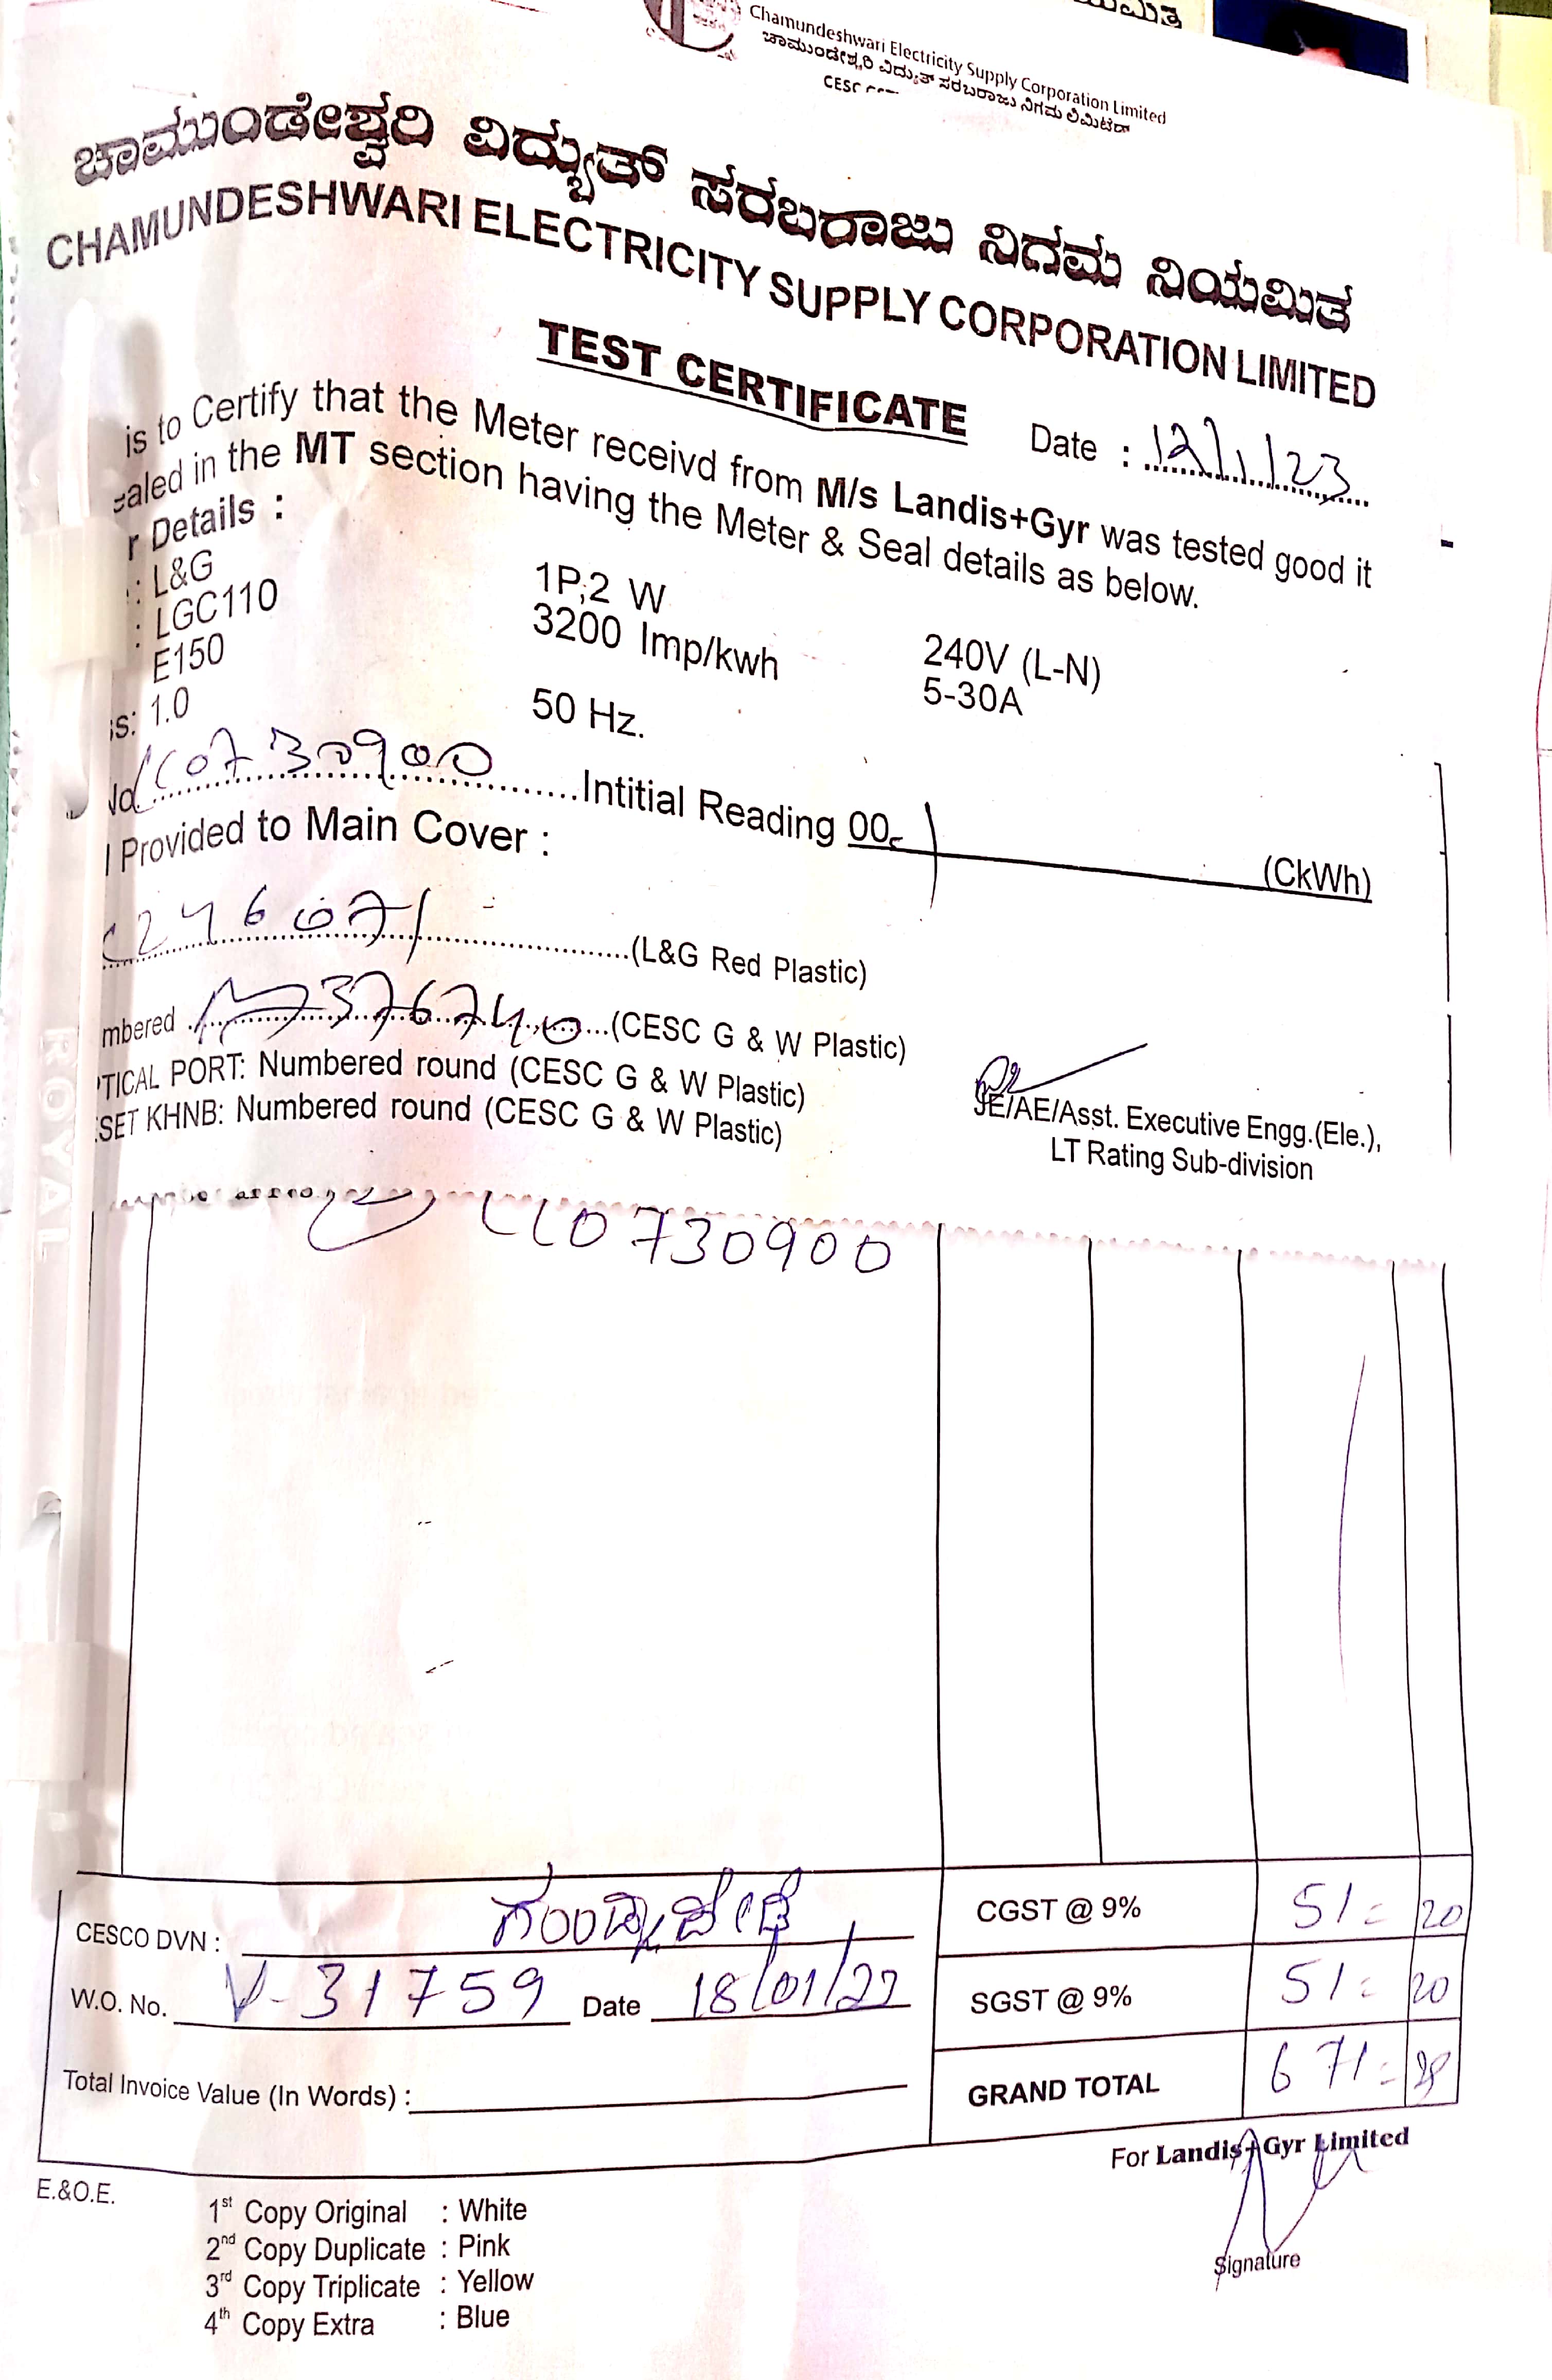 Chamundeshwari Electricity Supply Corporation Limited
ಚಾಮುಂಡೇಶ್ವರಿ ವಿದ್ಯುತ್ ಸರಬರಾಜು ನಿಗಮ ಲಿಮಿಟೆಡ್
CESC
ಚಾಮುಂಡೇಶ್ವರಿ ವಿದ್ಯುತ್ ಸರಬರಾಜು ನಿಗಮ ನಿಯಮಿತ
CHAMUNDESHWARI ELECTRICITY SUPPLY CORPORATION LIMITED
TEST CERTIFICATE
Date : 12/1/23
is to Certify that the Meter receivd from M/s Landis+Gyr was tested good it
ealed in the MT section having the Meter & Seal details as below.
r Details :
: L&G 1P,2 W 240V (L-N)
: LGC110 3200 Imp/kwh 5-30A
E150 50 Hz.
ss: 1.0
No. CC0730900 Intitial Reading 00 (CkWh)
l Provided to Main Cover :
C246071 (L&G Red Plastic)
mbered 376740 (CESC G & W Plastic)
TICAL PORT: Numbered round (CESC G & W Plastic)
SET KHNB: Numbered round (CESC G & W Plastic)
JE/AE/Asst. Executive Engg.(Ele.),
LT Rating Sub-division
CC0730900
CESCO DVN : ಗುಂಡ್ಲುಪೇಟೆ
CGST @ 9% 51= 20
W.O. No. V-31759 Date 18/01/23
SGST @ 9% 51= 20
Total Invoice Value (In Words) :
GRAND TOTAL 671=
For Landis+Gyr Limited
E.&O.E.
1st Copy Original : White
2nd Copy Duplicate : Pink
3rd Copy Triplicate : Yellow
4th Copy Extra : Blue
Signature